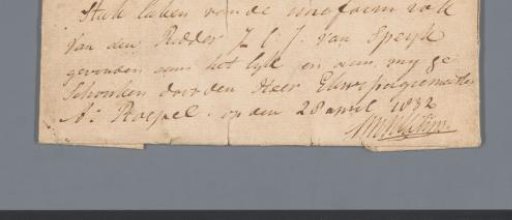 Stuk laken van de uniform rok
Van den Ridder J. C. J. Van Speyk
gevonden aan het lyk en aan my ge
schonken door den Heer
A: Roepel. op den 28 april 1832